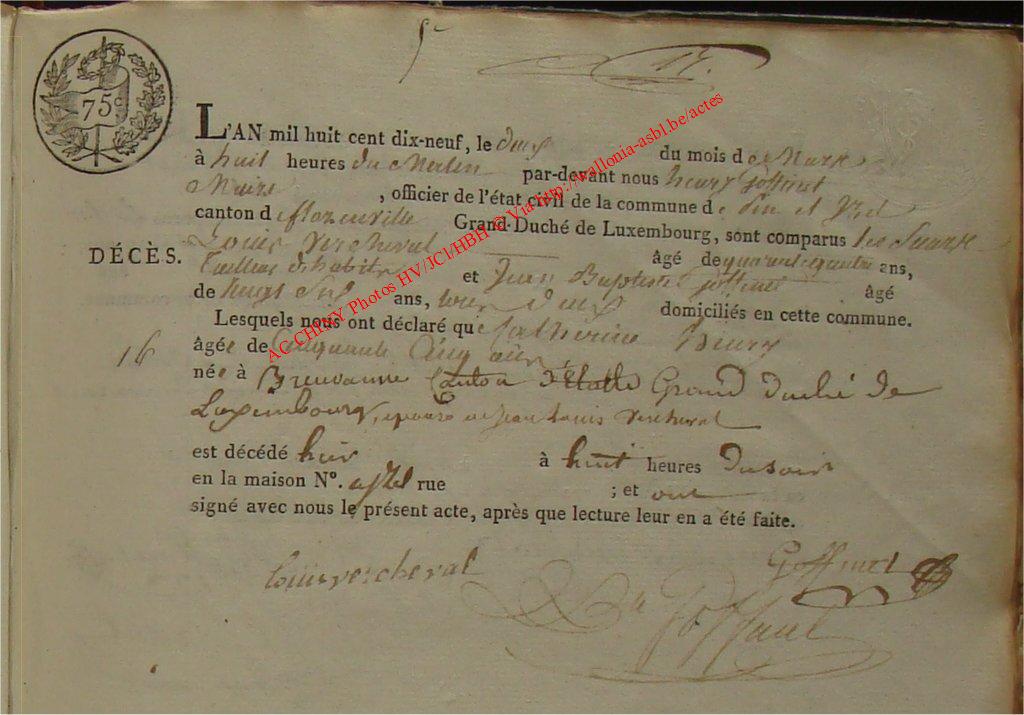 17.
75c
L'AN mil huit cent dix-neuf, le deux du mois de Mars
à huit heures du Matin par-devant nous henry Goffinet
Maire , officier de l'état civil de la commune de Pin et Izel
canton de florenville Grand-Duché de Luxembourg, sont comparus les Sieurs
Louis vercheval âgé de quarante quatre ans,
DÉCÈS.
Tailleur d'habits et Jean Baptiste Goffinet âgé
de ans, tous deux domiciliés en cette commune.
Lesquels nous ont déclaré que Catherine
16
âgée de Cinquante Cinq ans
née à Breuvanne Canton d'Etalle Grand duché de
Luxembourg, épouse de Jean Louis vercheval
est décédé hier à huit heures du soir
en la maison N°. a Izel rue ; et ont
signé avec nous le présent acte, après que lecture leur en a été faite.
Louis vercheval
Goffinet
AC CHINY Photos HV/JCI/HBH © Via http://wallonia-asbl.be/actes